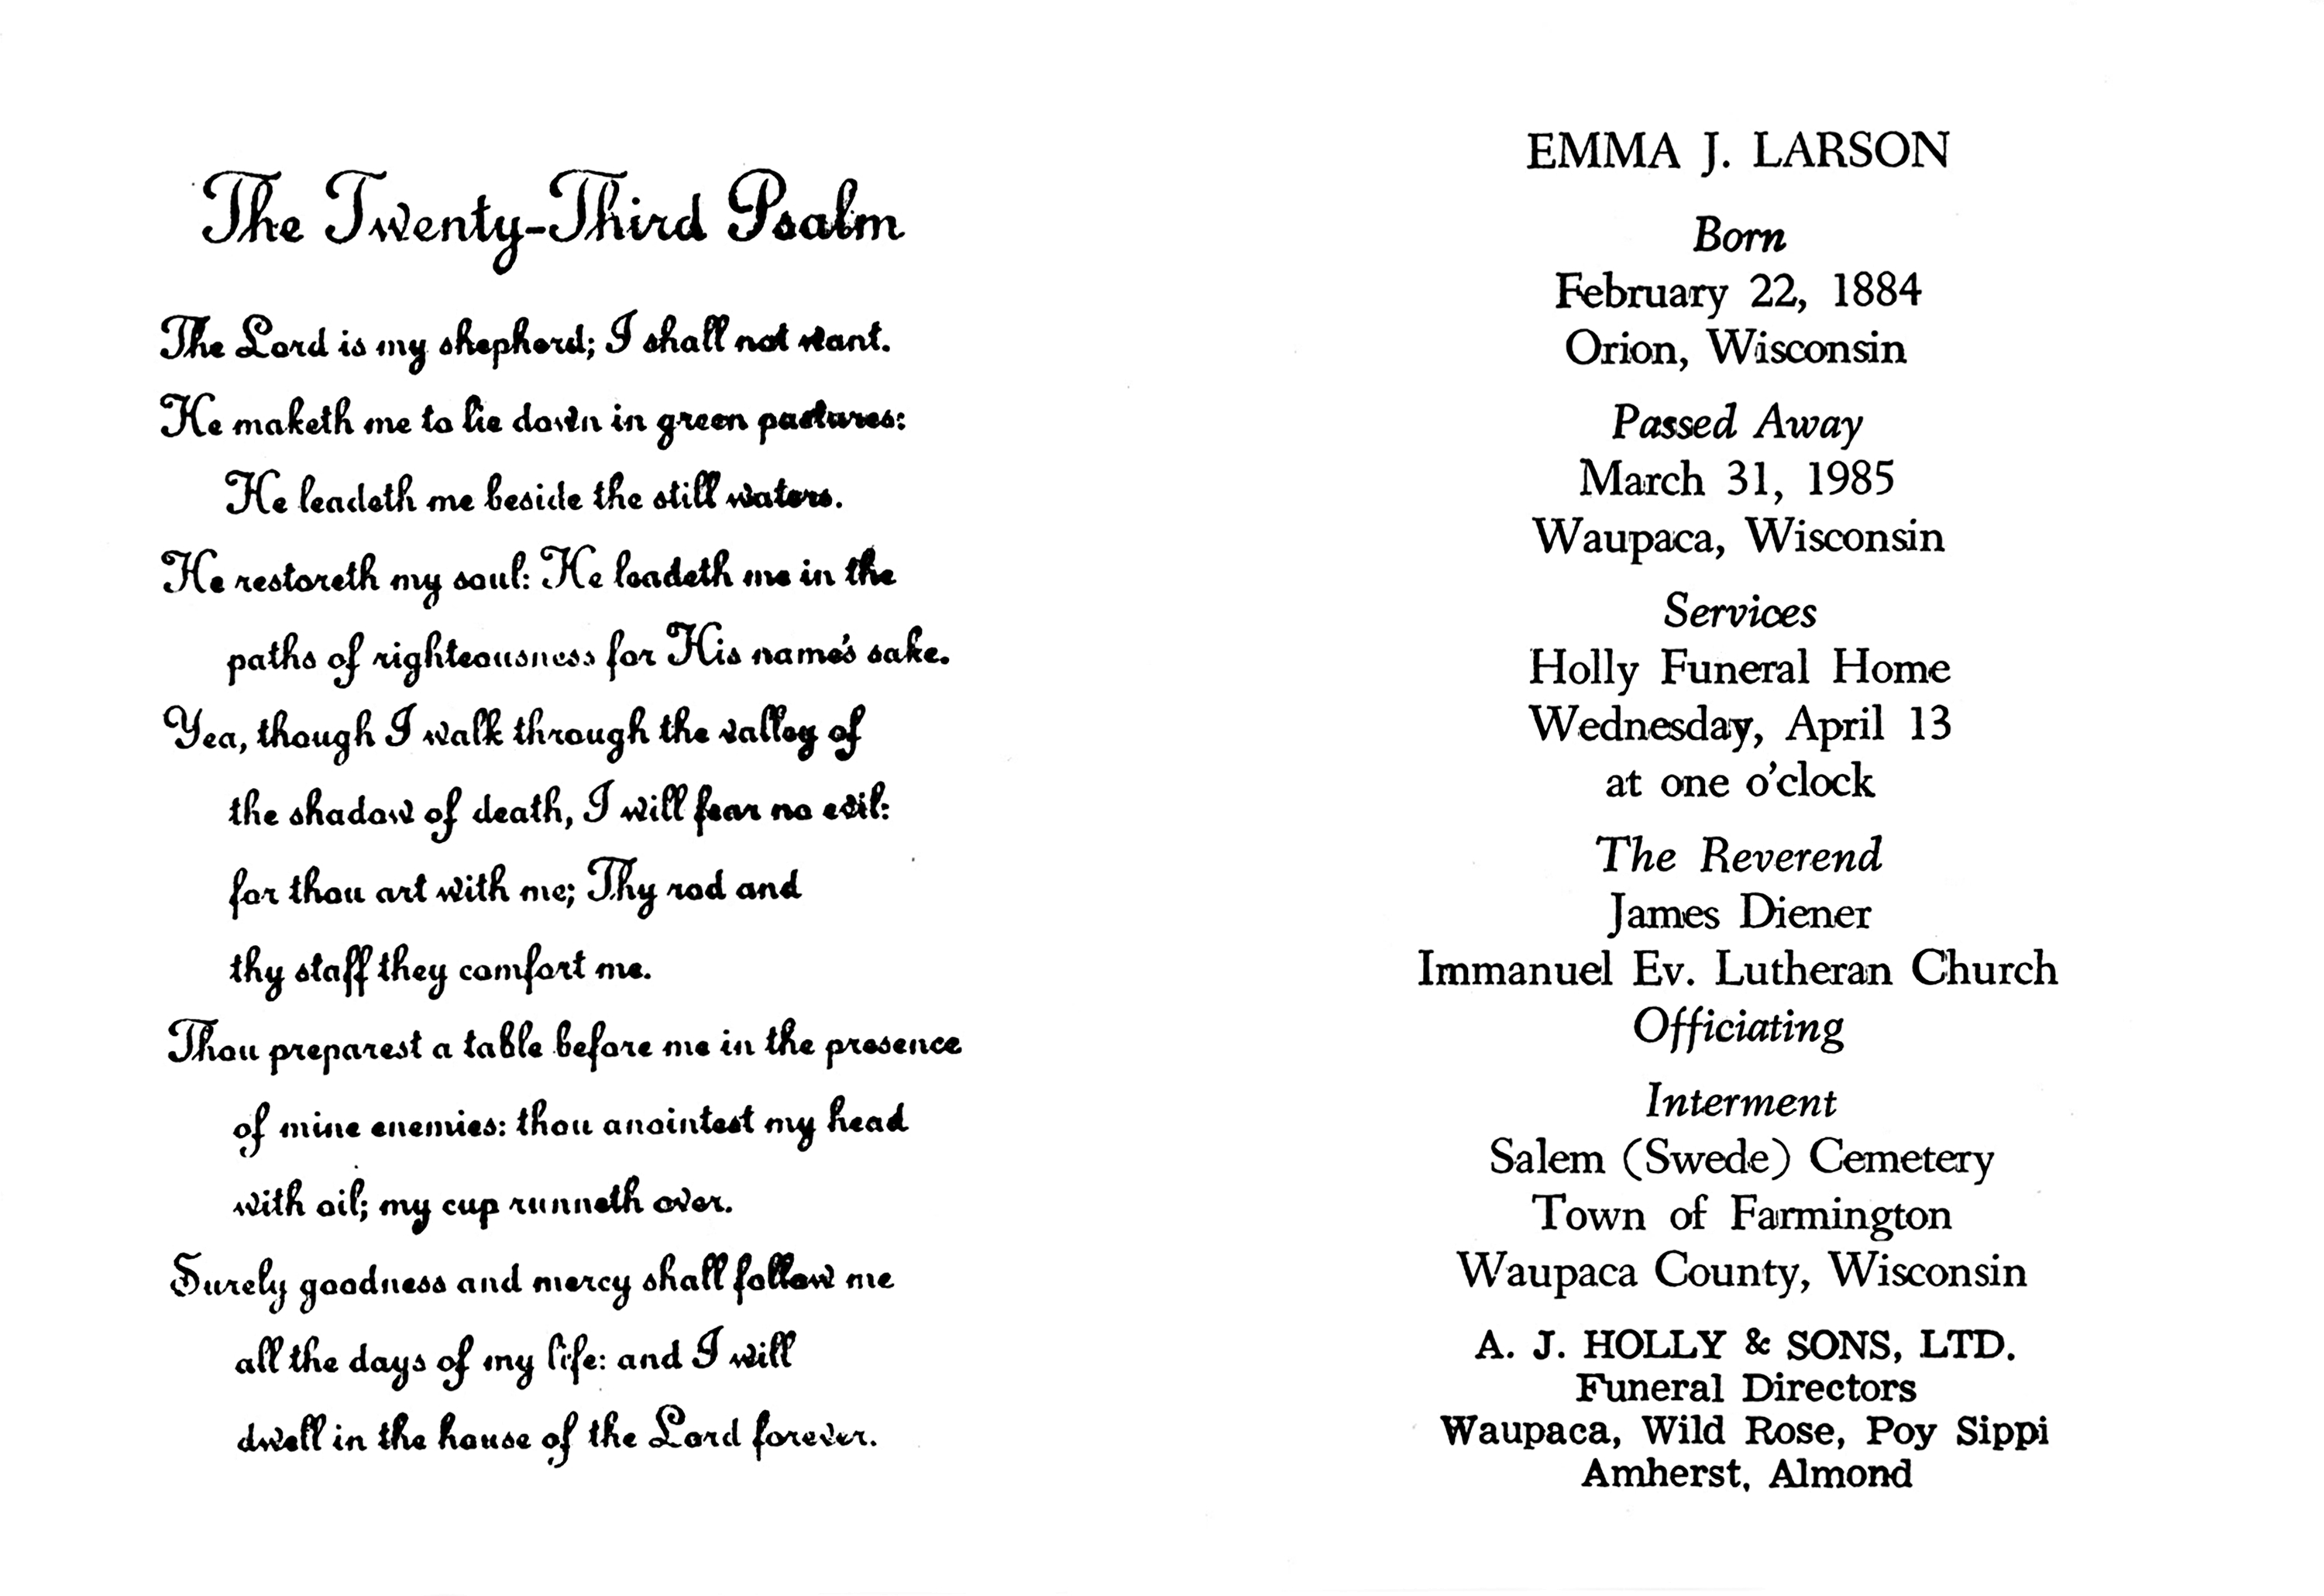 The Twenty-Third Psalm
The Lord is my shepherd; I shall not want.
He maketh me to lie down in green pastures:
He leadeth me beside the still waters.
He restoreth my soul: He leadeth me in the
paths of righteousness for His name's sake.
Yea, though I walk through the valley of
the shadow of death, I will fear no evil:
for thou art with me; Thy rod and
thy staff they comfort me.
Thou preparest a table before me in the presence
of mine enemies: thou anointest my head
with oil; my cup runneth over.
Surely goodness and mercy shall follow me
all the days of my life: and I will
dwell in the house of the Lord forever.
EMMA J. LARSON
Born
February 22, 1884
Orion, Wisconsin
Passed Away
March 31, 1985
Waupaca, Wisconsin
Services
Holly Funeral Home
Wednesday, April 13
at one o'clock
The Reverend
James Diener
Immanuel Ev. Lutheran Church
Officiating
Interment
Salem (Swede) Cemetery
Town of Farmington
Waupaca County, Wisconsin
A. J. HOLLY & SONS, LTD.
Funeral Directors
Waupaca, Wild Rose, Poy Sippi
Amherst, Almond